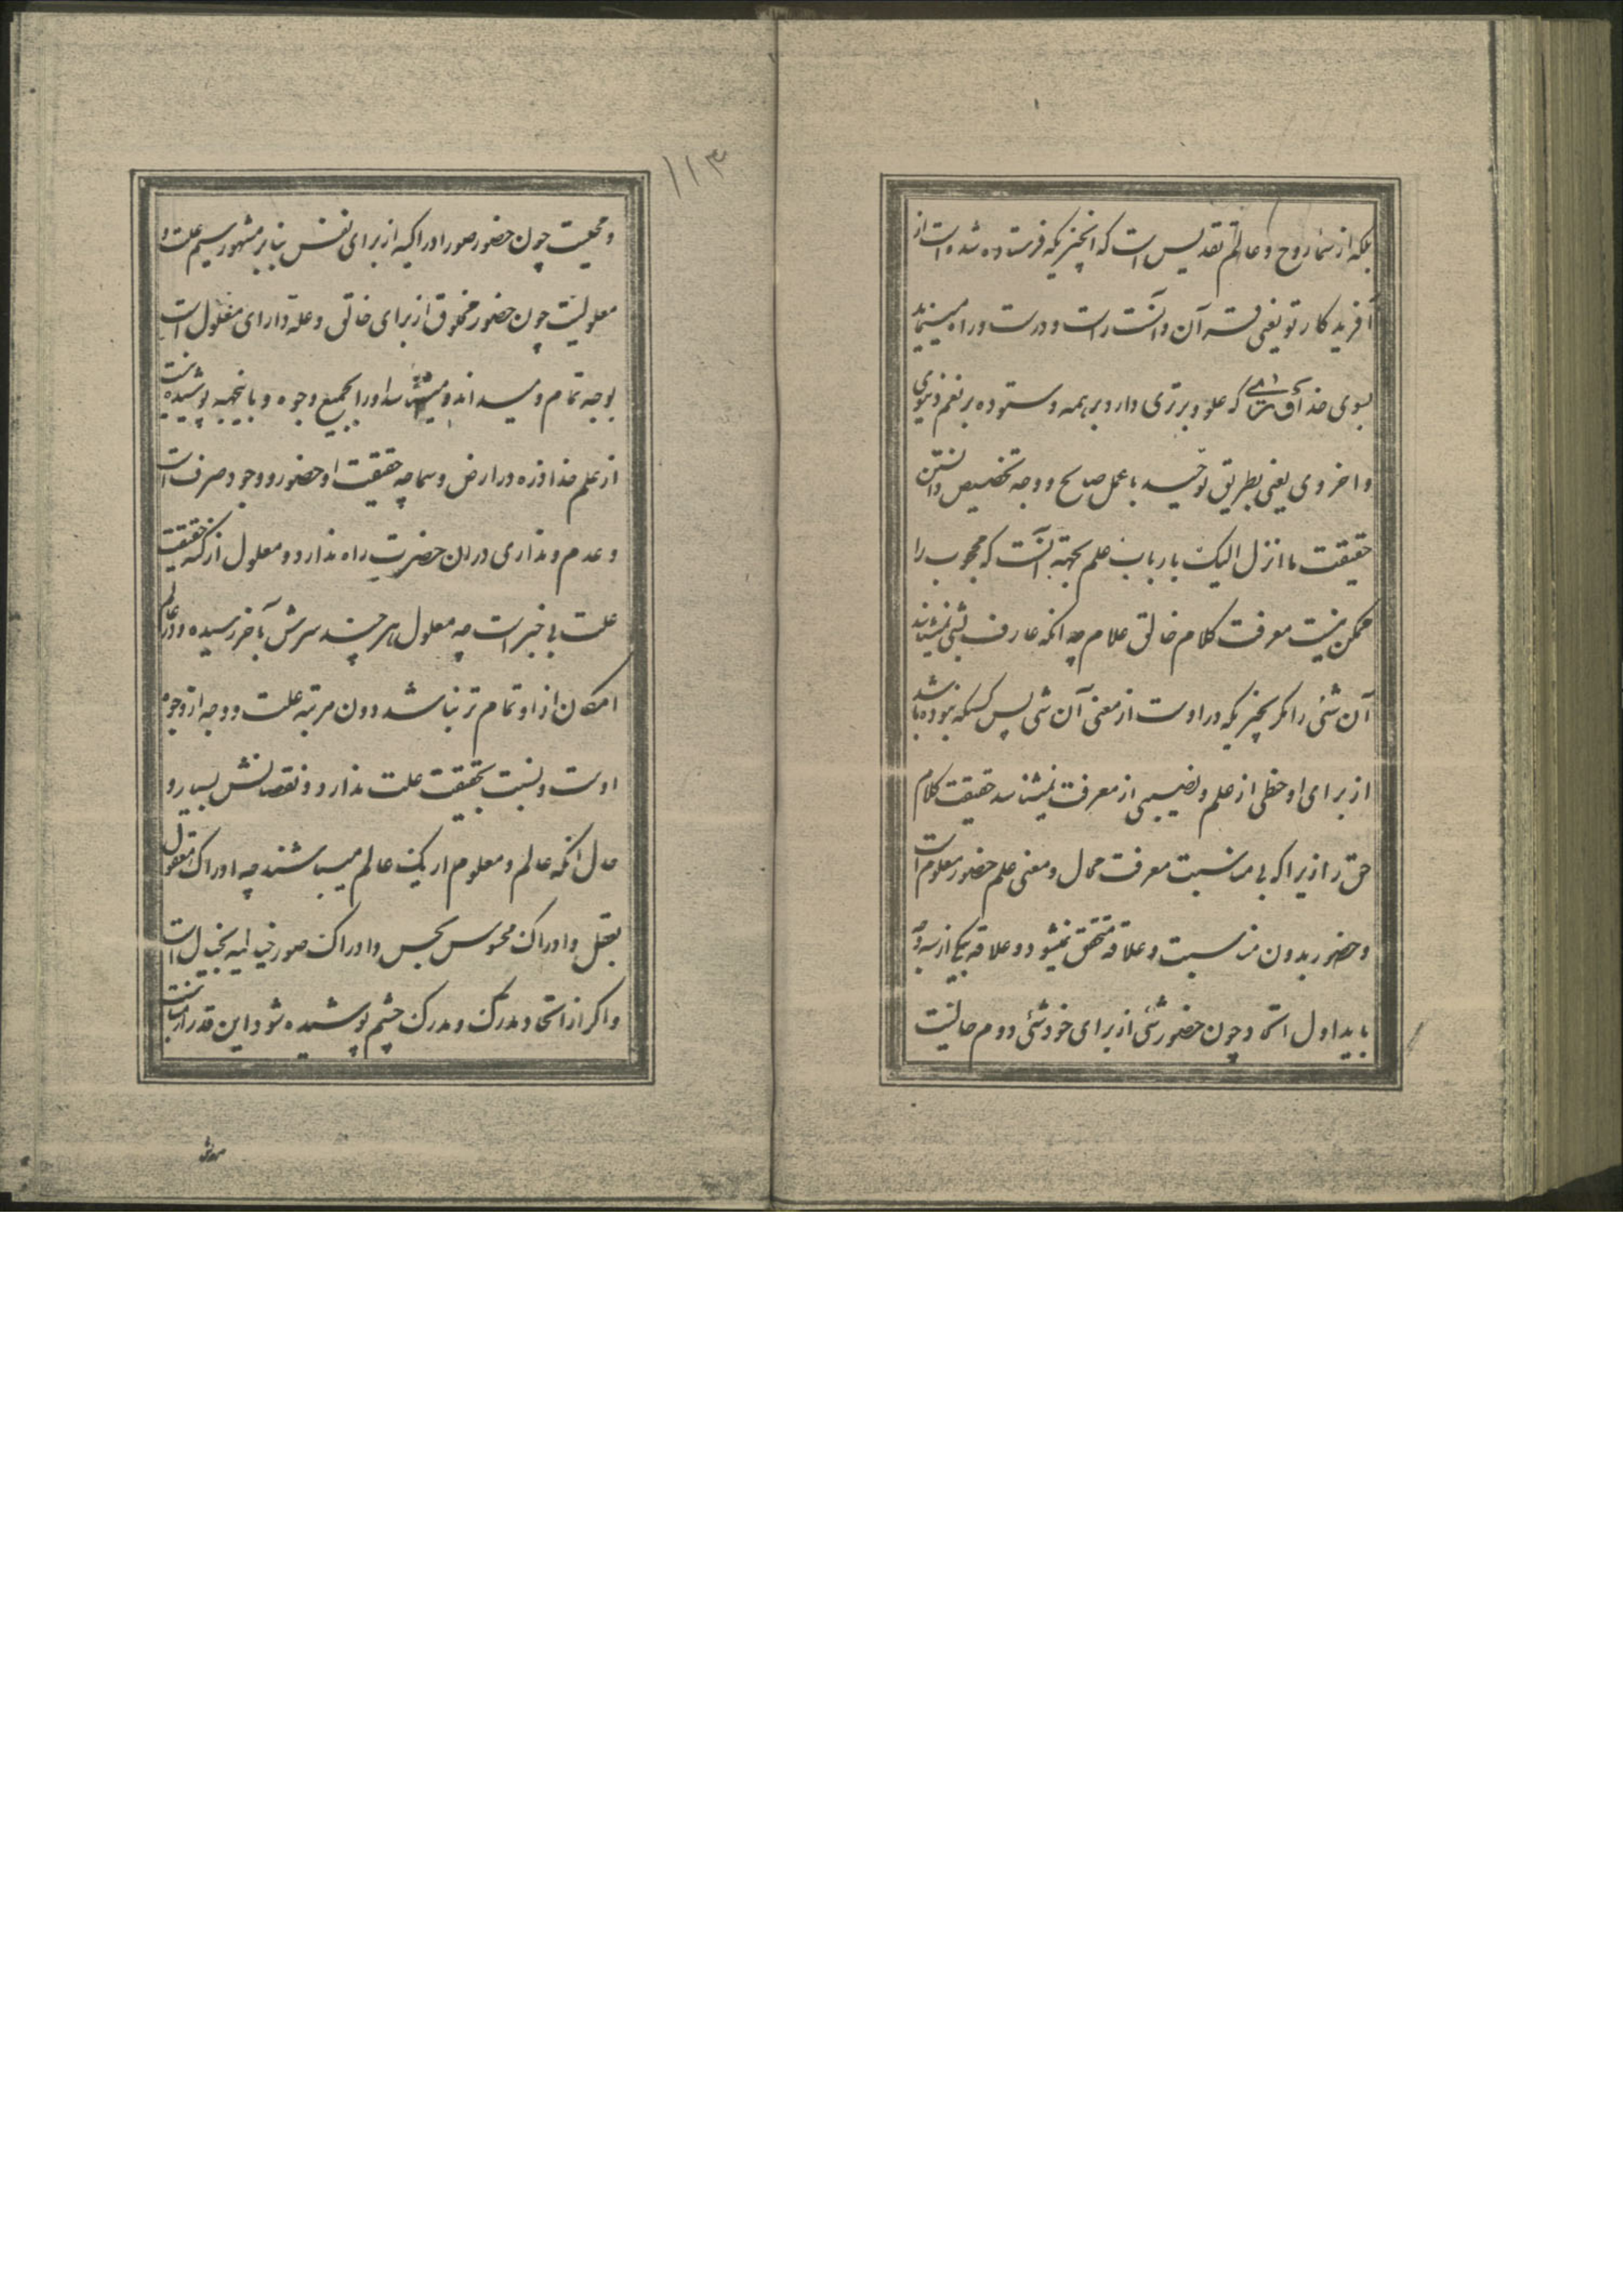 بلکه از سماء روح و عالم تقدیس است که آنچیزیکه فرستاده شده است از
آفریدکار تو یعنی قرآن و آنست راست و درست و راه مینماید
بسوی خدای که علو و برتری دارد بر همه و ستوده بر نعم دنیوی
و اخروی یعنی بطریق توحید با عمل صالح و وجه تخصیص دانستن
حقیقت ما انزل الیک بارباب علم بجهة آنست که محجوب را
ممکن نیست معرفت کلام خالق علام چه آنکه عارف بشئی نمیشناسد
آن شئی را مکر بچیزیکه در اوست از معنی آن شئی پس کسیکه نبوده باشد
از برای او حظی از علم و نصیبی از معرفت نمیشناسد حقیقت کلام
حق را زیرا که بی مناسبت معرفت محال و معنی علم حضور معلوم است
و حضور بدون مناسبت و علاقه متحقق نمیشود و علاقه یکی از سه
باید اول اتحاد چون حضور شئی از برای خود شئی دوم حالیت
۱۱۳
و محلیت چون حضور صور ادراکیه از برای نفس بنابر مشهور سیم علت و
معلولیت چون حضور مخلوق از برای خالق و علة دارای معلول است
بوجه تمام و میداند و میشناسد او را بجمیع وجوه و باینجهة پوشیده نیست
از علم خدا ذره در ارض و سما چه حقیقت او حضور و وجود صرف است
و عدم و نداری در ان حضرت راه ندارد و معلول از کنه حقیقت
علت بی خبر است چه معلول هر چند سرش بآخر رسیده و در عالم
امکان از او تمام تر نباشد دون مرتبه علت و وجه از وجوه
اوست و نسبت بحقیقت علت ندارد و نقصانش بسیار و
حال آنکه عالم و معلوم از یک عالم میباشند چه ادراک معقول
بعقل و ادراک محسوس بحس و ادراک صور خیالیه بخیال است
و اکر از اتحاد مدرک و مدرک چشم پوشیده شود این قدر